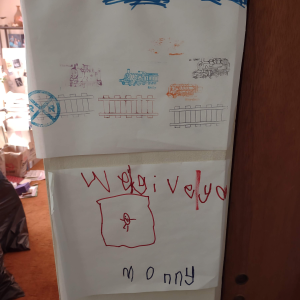 We give yo
monny